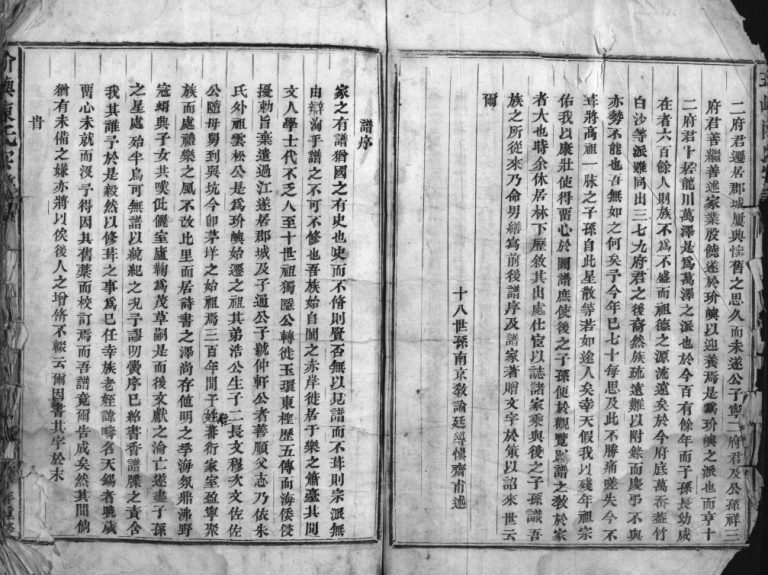 二府君遷居郡城屢興懷舊之思久而未遂公子寧二府君及公孫祥三
府君善繼善述家業殷德遂於玠嶴以迎養焉是為玠嶴之派也而亨十
二府君卜若龍川萬澤是為萬澤之派也於今百有餘年而子孫長幼咸
在者六百餘人則族不為不盛而祖德之源流遠矣於今府底萬岙藎竹
白沙等派雖同出三七九府君之後裔然族疏遠難以附錄而慶弔不與
亦勢不能也吾無如之何矣予今年已七十每思及此不勝痛嗟失今不
葺將高祖一脉之子孫自此星散等若如途人矣幸天假我以殘年祖宗
佑我以康壯使得畱心於圖譜庶使後之子孫便於觀覽則譜之教於家
者大也時余休居林下歷敘其出處仕宦以誌諸家乘與後之子孫識吾
族之所從來乃命男繕寫前後譜序及諸家著贈文字於策以詔來世云
爾
十八世孫南京敎諭廷𨗿懷齋甫述
譜序
家之有譜猶國之有史也史而不脩則賢否無以見譜而不葺則宗派無
由辯洵乎譜之不可不修也吾族始自閩之赤岸徙居于樂之簫臺其間
文人學士代不乏人至十世祖獨隱公轉徙玉環東㮰歷五傳而海倭侵
擾勅旨棄遣過江遂居郡城及子通公子號仲軒公者善順父志乃依朱
氏外祖雲松公是為玠嶴始遷之祖其弟浩公生子二長文穆次文佐佐
公隨母舅到與坑今卽茅垟之始祖焉三百年間子姓蕃衍家室盈寧聚
族而處禮樂之風不改此里而居詩書之澤尚存値明之季海氛鼎沸野
寇蜩興子女共嘆仳儷室廬鞠為茂草嗣是而後文獻之淪亡遂盡子孫
之星處殆半烏可無譜以統紀之況予謬明黌序已綌書香譜牒之責舍
我其誰予於是毅然以修葺之事為已任幸族老姪諱疇名天錫者晚歲
畱心未就而沒予得因其舊藁而校訂焉而吾譜竟爾告成矣然其間倘
猶有未備之嫌亦將以俟後人之增脩不輟云爾因書其字於末
旹